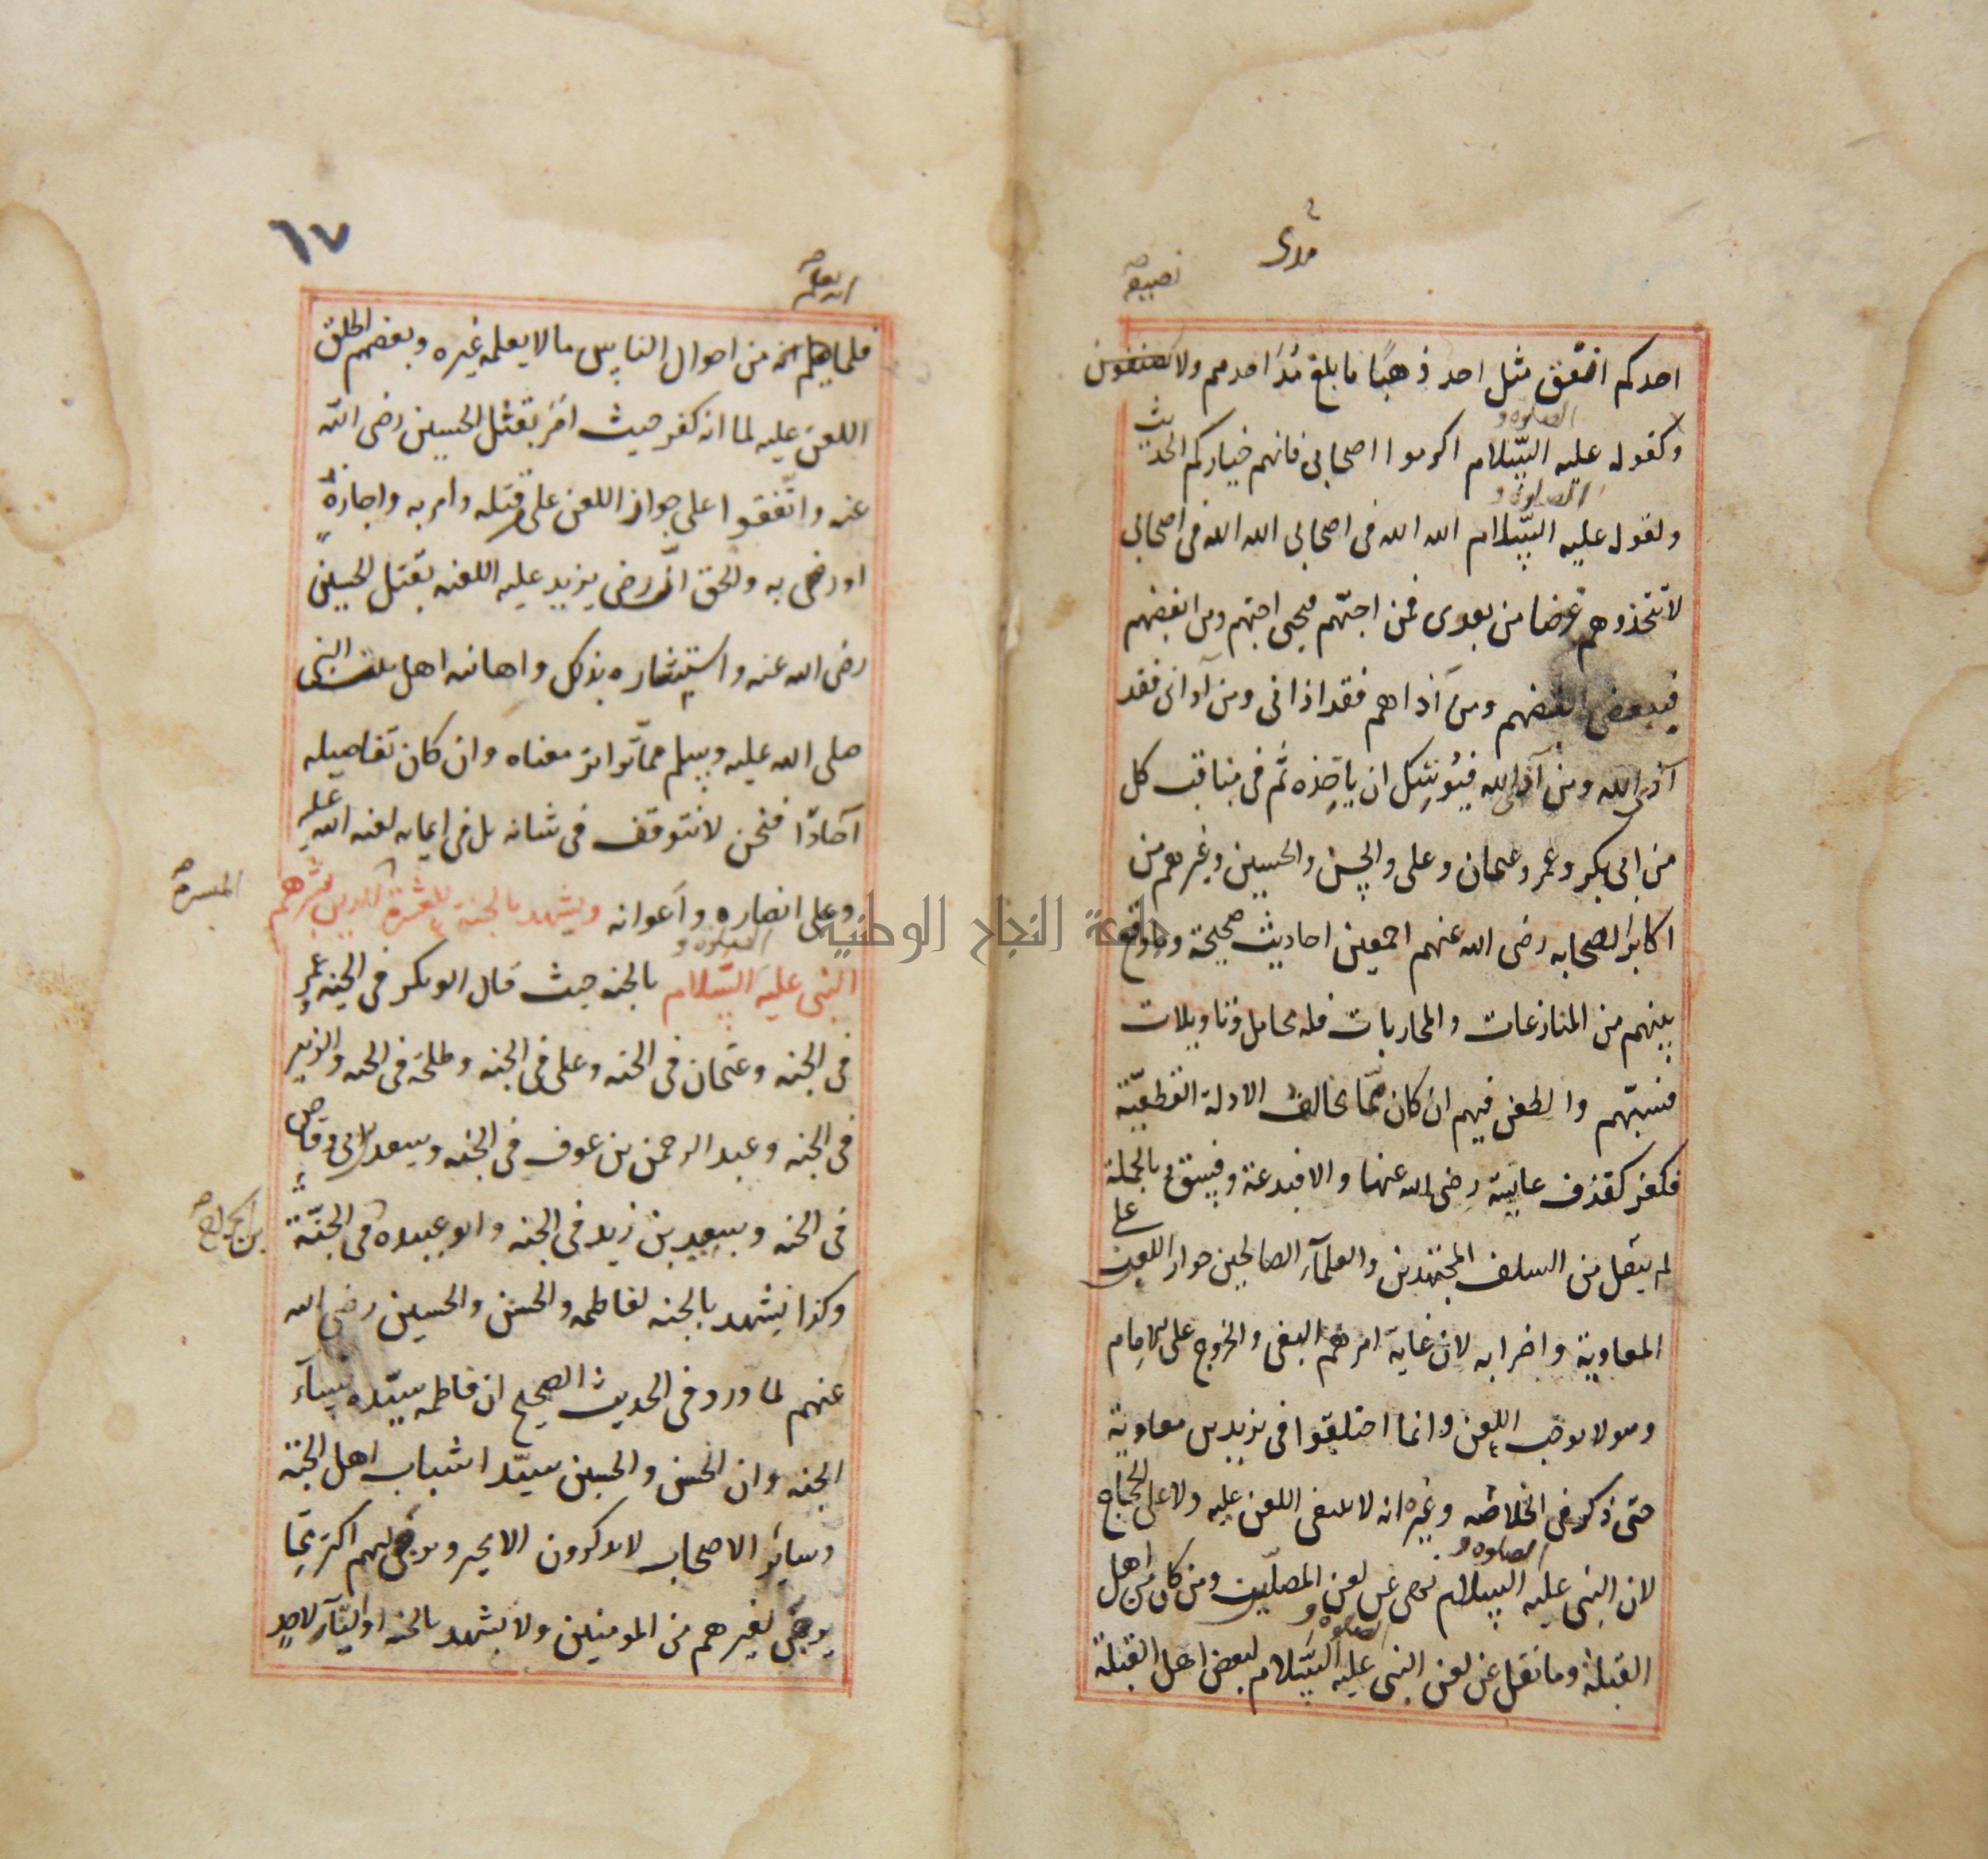 نصيفه
احدكم انفق مثل احد ذهبا ما بلغ مد احدهم ولا
وكقوله عليه الصلوه و السّلام اكرموا اصحابى فانهم خياركم الحديث
ولقوله عليه الصلوه و السّلام الله الله فى اصحابى الله الله فى اصحابى
لا تتخذوهم غرضا من بعدى فمن احبّهم فبحبى احبهم ومن ابغضهم
فببغضى ابغضهم ومن آذاهم فقد اذانى ومن آذانى فقد
آذى الله ومن آذى الله فيُوشِك ان ياخذه ثم فى مناقب كل
من ابى بكر وعمر وعثمان وعلى والحسن والحسين وغيرهم من
اكابر الصحابه رضى الله عنهم اجمعين احاديث صحيحة وما وقع
بينهم من المنازعات والمحاربات فله محامل وتاويلات
فسبّهم والطعن فيهم ان كان ممّا يخالف الادلة القطعيّة
فكفر كقذف عايشة رضى الله عنها والا فبدعة وفسق بالجملة
لم ينقل من السلف المجتهدين والعلمآء الصالحين جواز اللعن على
المعاوية واضرابه لان غاية امرهم البغى والخروج على الامام
وهو لا يوجب اللعن وانما اختلفوا فى يزيد بن معاوية
حتى ذكر فى الخلاصه وغيره انه لا ينبغى اللعن عليه ولا على الحجاج
لان النبى عليه الصلوه و السلام نهى عن لعن المصلّين ومن كان من اهل
القبلة وما نقل عن لعن النبى عليه الصلوه و السّلام لبعض اهل القبلة
٦٧
انه يعلم
فلما من احوال الناس ما لا يعلمه غيره وبعضهم اطلق
اللعن عليه لما انه كفر حيث امر بقتل الحسين رضى الله
عنه واتّفقوا على جواز اللعن على من قتله وامر به واجازه
او رضى به والحق انّ رضى يزيد عليه اللعنه بقتل الحسين
رضى الله عنه واستبشاره بذلك واهانه اهل بيت النبى
صلى الله عليه وسلم مما تواتر معناه وان كان تفاصيله
آحادًا فنحن لا نتوقف فى شانه بل فى ايمانه لعنه الله عليه
وعلى انصاره واعوانه ويشهد بالجنة للعشرة المبشرة الذين بشرهم
النبى عليه الصلوه و السّلام بالجنه حيث قال ابو بكر فى الجنه وعمر
فى الجنه وعثمان فى الجنه وعلى فى الجنه وطلحة فى الجنه والزبير
فى الجنه وعبد الرحمن بن عوف فى الجنه وسعد بن ابى وقاص
فى الجنه وسعيد بن زيد فى الجنه وابو عبيده بن الجراح فى الجنّة
وكذا يشهد بالجنه لفاطمه والحسن والحسين رضى الله
عنهم لما ورد فى الحديث الصحيح ان فاطمه سيّده نسآء
الجنه وان الحسن والحسين سيّدا شباب اهل الجنّة
وسائر الاصحاب لا يذكرون الا بخير ويرجى لهم اكثر ممّا
يرجى لغيرهم من المومنين ولا يشهد بالجنه او النّآر لاحد
جامعة النجاح الوطنية